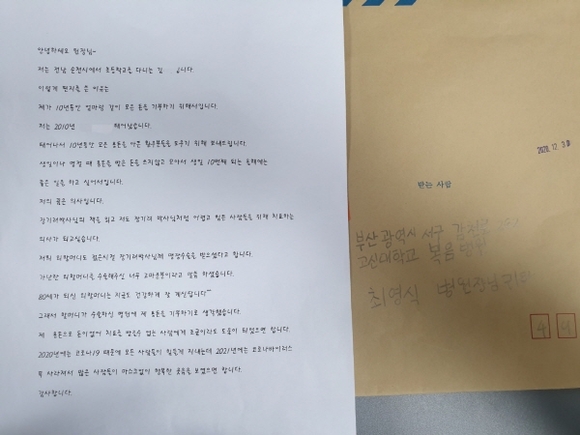 안녕하세요 원장님~
저는 전남 순천시에서 초등학교를 다니는 김 입니다.
이렇게 편지를 쓴 이유는
제가 10년동안 엄마랑 같이 모은 돈을 기부하기 위해서입니다.
저는 2010년 태어났습니다.
태어나서 10년동안 모은 용돈을 아픈 환우분들을 도우기 위해 보내드립니다.
생일이나 명절 때 용돈을 받은 돈을 쓰지않고 모아서 생일 10번째 되는 올해에는
좋은 일을 하고 싶어서입니다.
저의 꿈은 의사입니다.
장기려박사님의 책을 읽고 저도 장기려 박사님처럼 어렵고 힘든 사람들을 위해 치료하는
의사가 되고싶습니다.
저희 외할머니도 젊은시절 장기려박사님께 맹장수술을 받으셨다고 합니다.
가난한 외할머니를 수술해주신 너무 고마운분이라고 말씀 하셨습니다.
80세가 되신 외할머니는 지금도 건강하게 잘 계신답니다^^
그래서 할머니가 수술하신 병원에 제 용돈을 기부하기로 생각했습니다.
제 용돈으로 돈이없어 치료를 받을수 없는 사람에게 조금이라도 도움이 되었으면 합니다.
2020년에는 코로나19 때문에 모든 사람들이 힘들게 지내는데 2021년에는 코로나바이러스
싹 사라져서 많은 사람들이 마스크없이 행복한 웃음을 보였으면 합니다.
감사합니다.
2020. 12. 3
받는 사람
부산광역시 서구
고신대학교 복음병원
최영식 병원장님 귀하
4 9